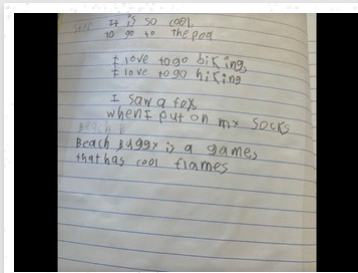 It is so cool
to go to the pool
I love to go biking
I love to go hiking
I saw a fox
when I put on my socks
Beach Buggy is a game,
that has cool flames